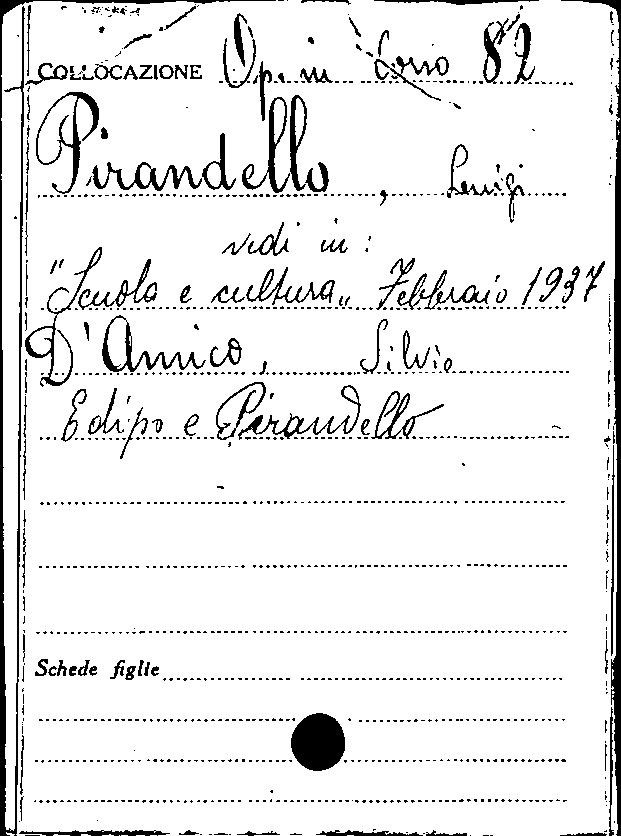 COLLOCAZIONE Op. in Corso 82
Pirandello, Luigi
vedi in:
"Scuola e cultura„ Febbraio 1937
D'Amico, Silvio
Edipo e Pirandello
Schede figlie